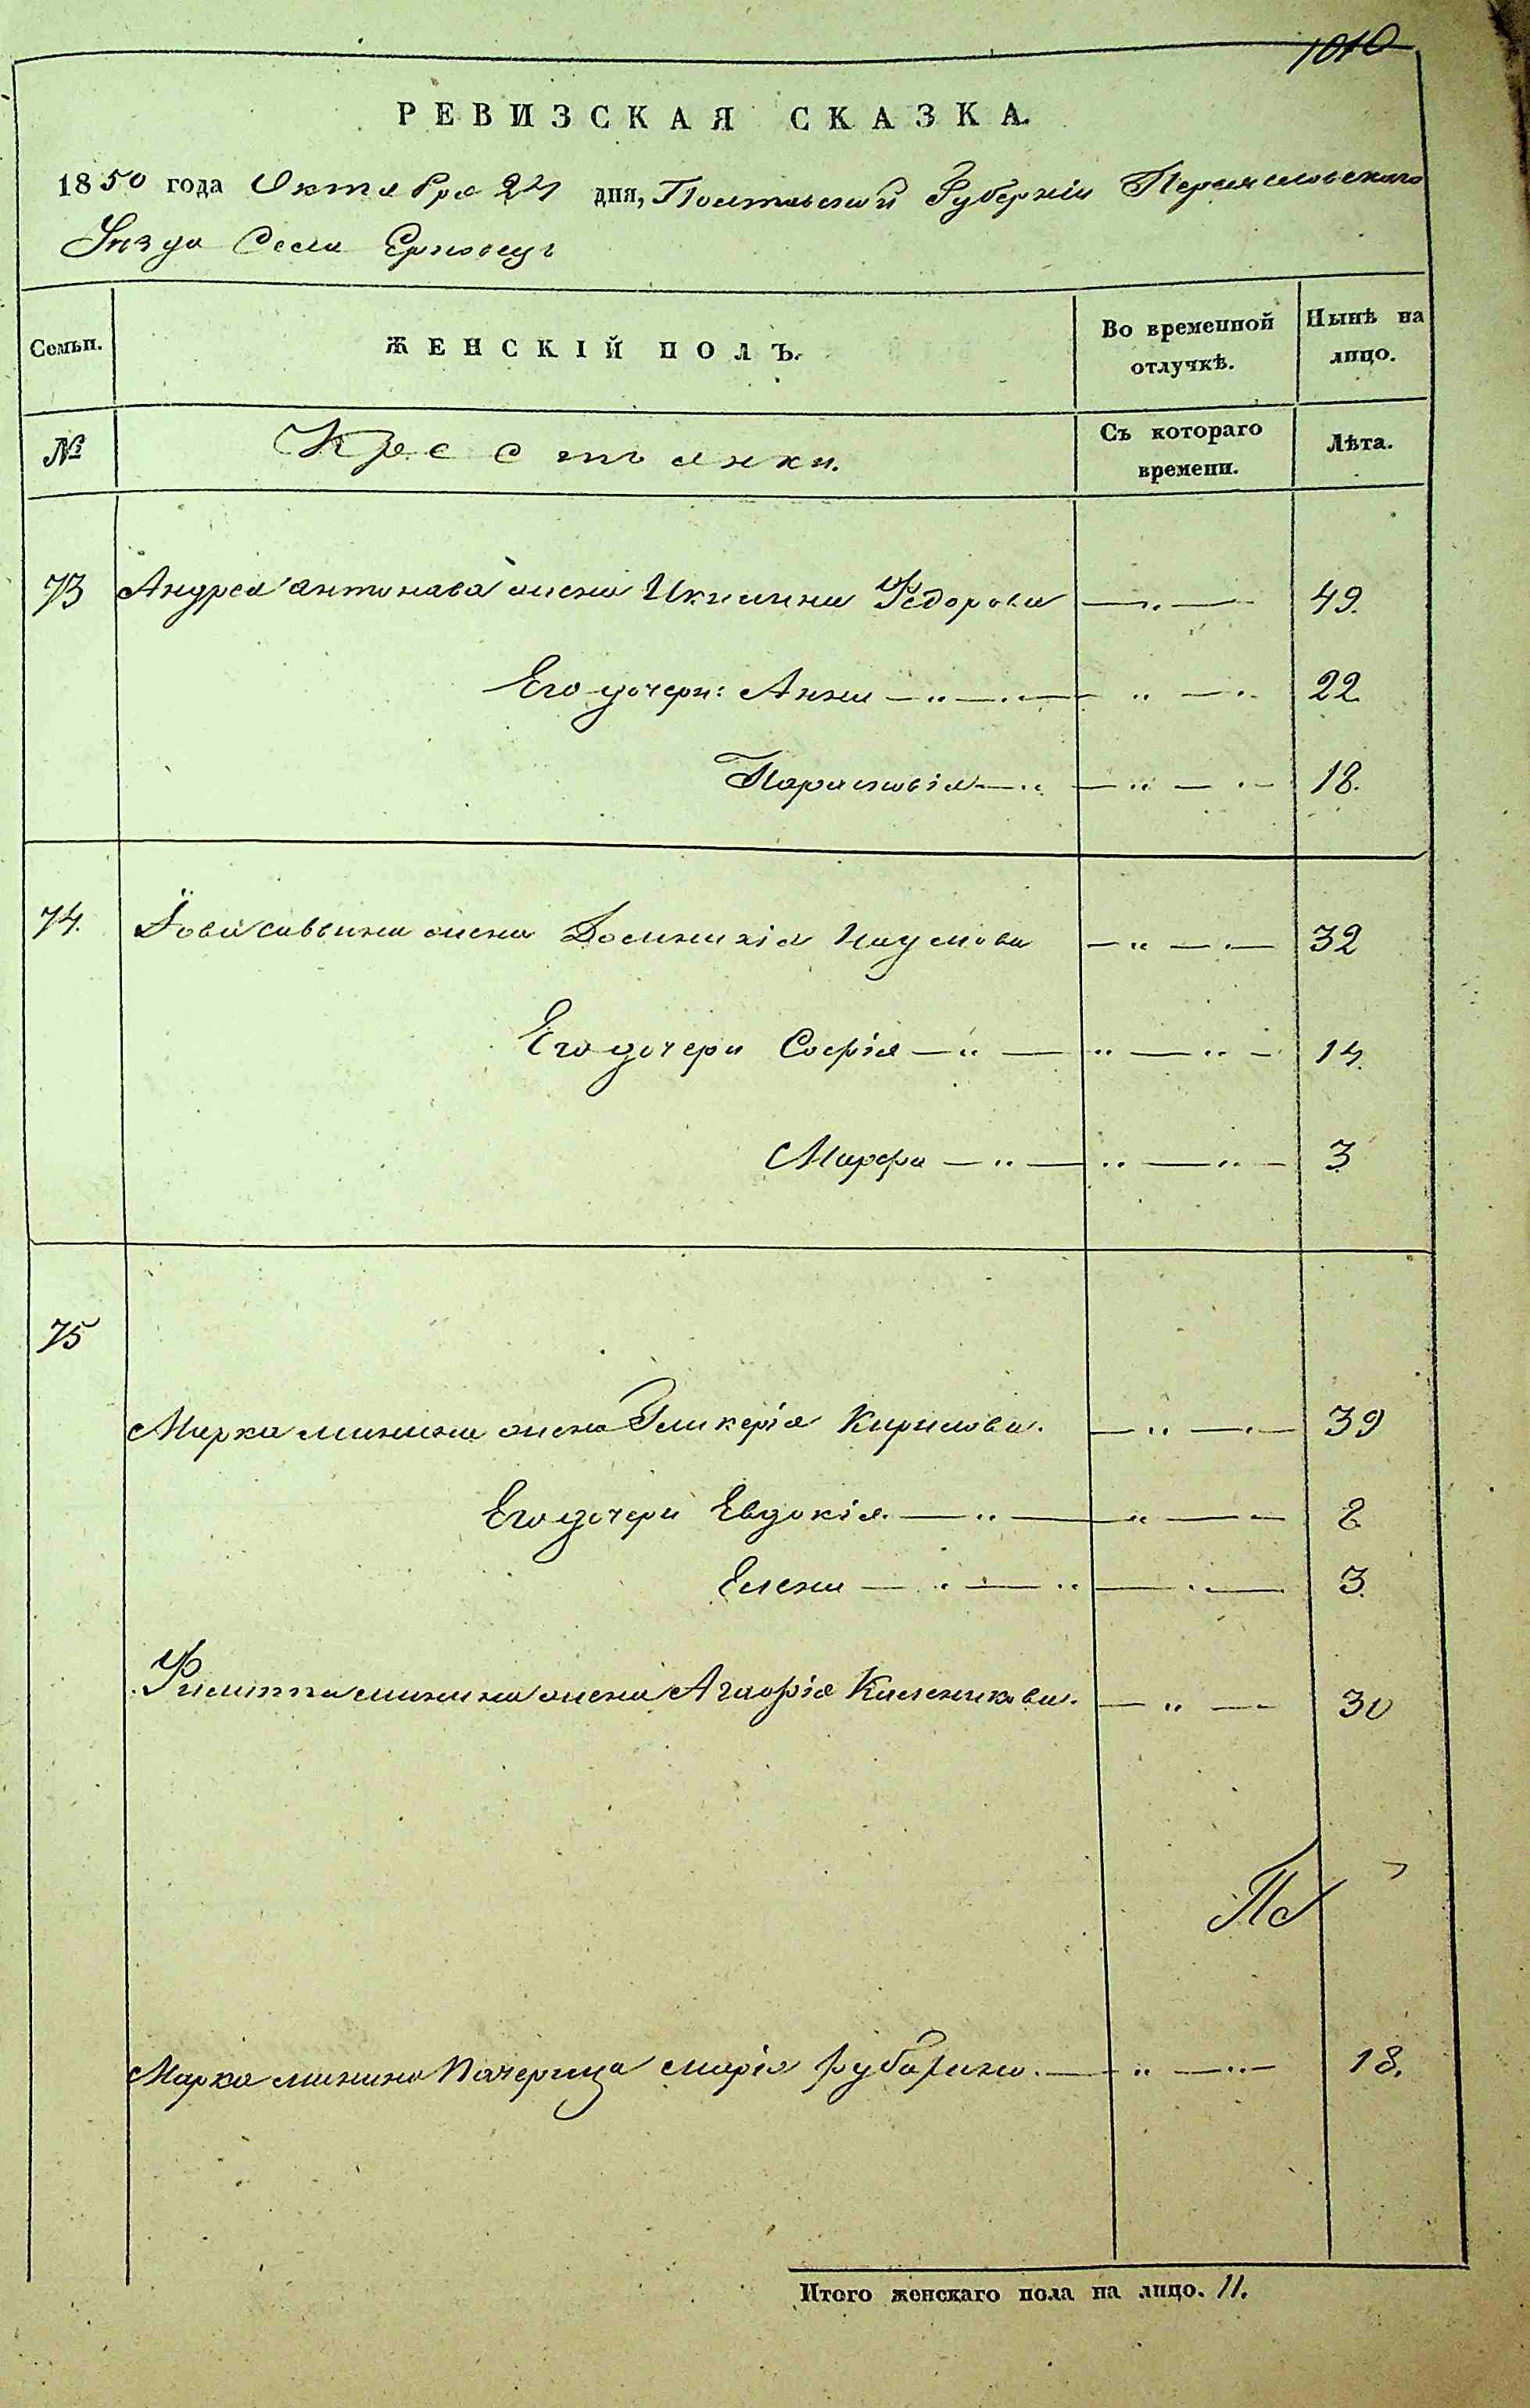 1010
РЕВИЗСКАЯ СКАЗКА.
1850 года Октября 24 дня, Полтавской Губерніи Переяславского
Уѣзда Села Ерковец
Семьи. ЖЕНСКІЙ ПОЛЪ. Во временной отлучкѣ. Нынѣ на лицо.
№ Крестьянки. Съ котораго времени. Лѣта.
73 Андрея Антонова жена Икилина Федорова —„— 49.
Его дочери: Анна —„—„— „ —„ 22
Парасковія —„ —„— „— 18.
74. Іова Саввина жена Домникія Наумова —„—„— 32
Его дочери Софія —„— „—„— 14.
Марфа —„— „—„— 3
75
Марка Минина жена Гликерія Кирилова. —„—„— 39
Его дочери Евдокія —„— „—„— 8
Елена —„—„ —„— 3.
Филиппа Минина жена Агафія Каленикова. —„—„— 30
Марка Минина Падчерица Марія — „—„— 18.
Итого женскаго пола на лицо. 11.